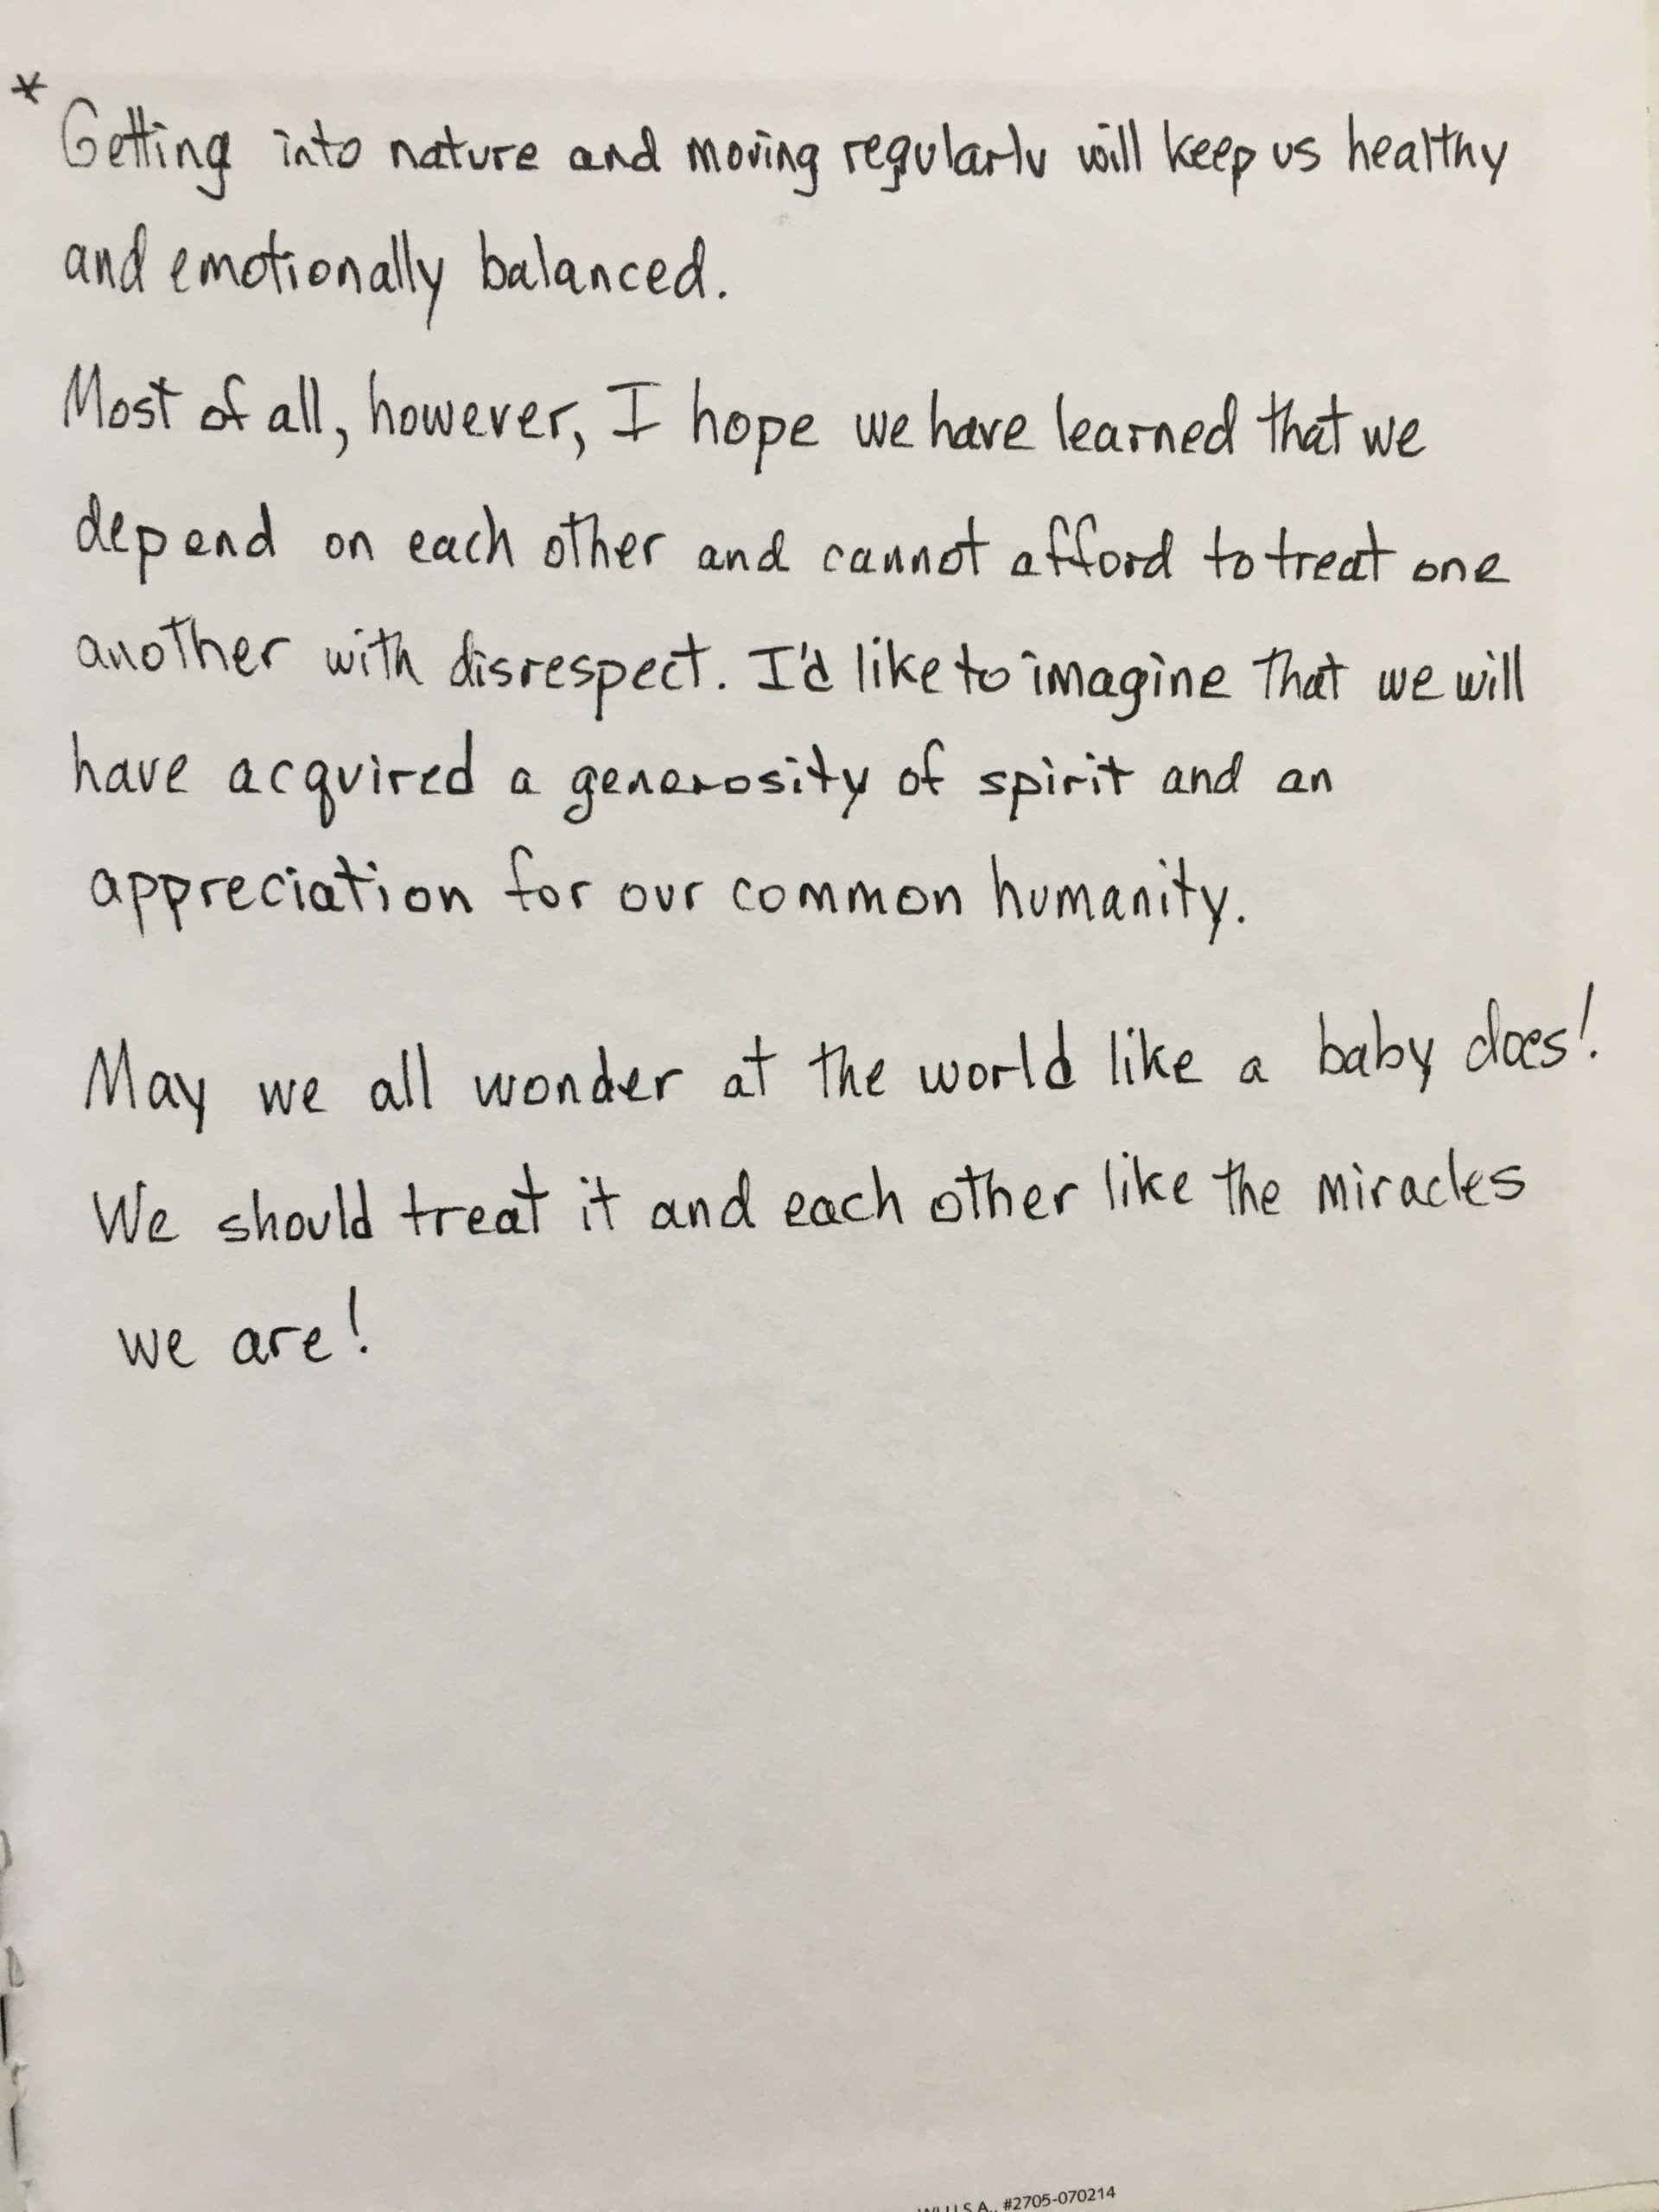 * Getting into nature and moving regularly will keep us healthy
and emotionally balanced.
Most of all, however, I hope we have learned that we
depend on each other and cannot afford to treat one
another with disrespect. I'd like to imagine that we will
have acquired a generosity of spirit and an
appreciation for our common humanity.
May we all wonder at the world like a baby does!
We should treat it and each other like the miracles
we are!
U.S.A., #2705-070214